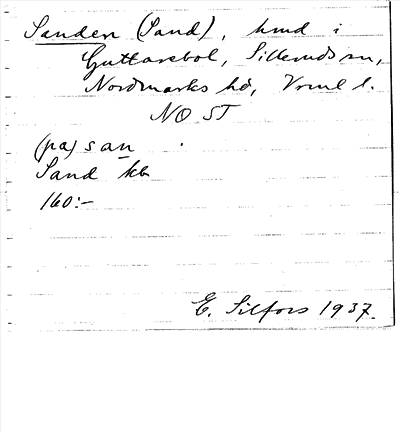 Sanden (Sand), hmd i
Guttanebol, Sillerudssn,
Nordmarks hd, Vrml l.
NO ST
(pa) san
Sand kb
160:-
E. Silfors 1937.